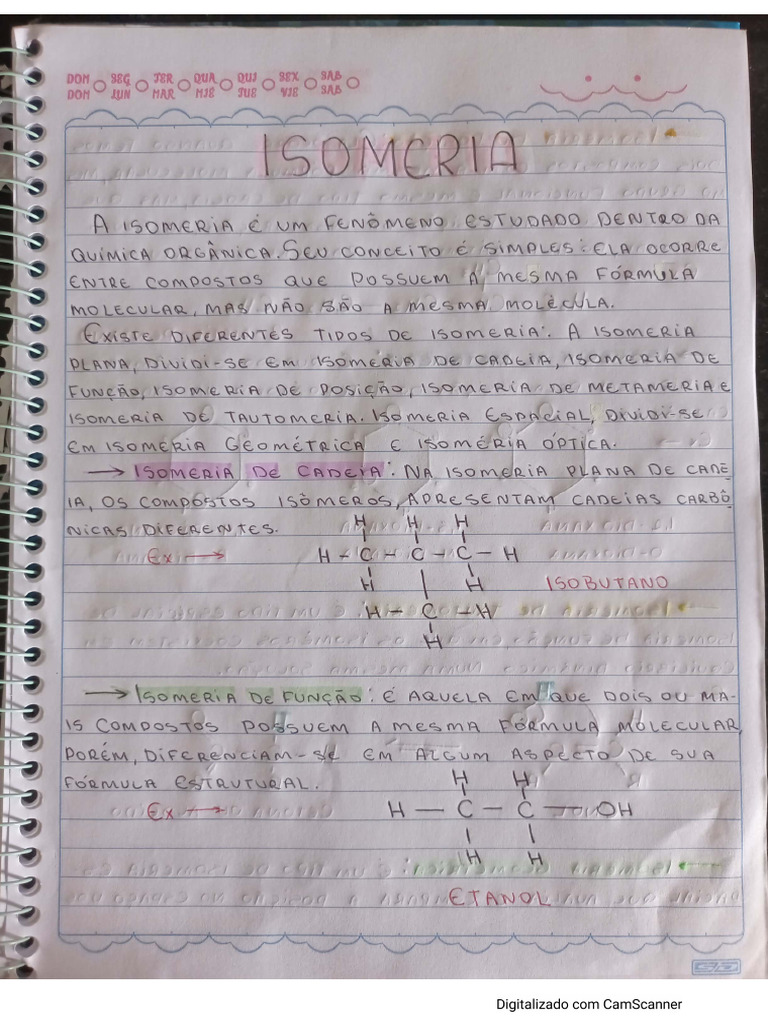 DOM SEG TER QUA QUI SEX SAB
DOM LUN MAR MIE JUE VIE SAB
ISOMERIA
A ISOMERIA É UM FENÔMENO ESTUDADO DENTRO DA
QUÍMICA ORGÂNICA. SEU CONCEITO É SIMPLES: ELA OCORRE
ENTRE COMPOSTOS QUE POSSUEM A MESMA FÓRMULA
MOLECULAR, MAS NÃO SÃO A MESMA MOLÉCULA.
EXISTE DIFERENTES TIPOS DE ISOMERIA: A ISOMERIA
PLANA, DIVIDI-SE EM ISOMERIA DE CADEIA, ISOMERIA DE
FUNÇÃO, ISOMERIA DE POSIÇÃO, ISOMERIA DE METAMERIA E
ISOMERIA DE TAUTOMERIA. ISOMERIA ESPACIAL, DIVIDI-SE
EM ISOMERIA GEOMÉTRICA E ISOMÉRIA ÓPTICA.
→ ISOMERIA DE CADEIA: NA ISOMERIA PLANA DE CADE
IA, OS COMPOSTOS ISÔMEROS, APRESENTAM CADEIAS CARBÔ
NICAS DIFERENTES.
H H H
Ex → H - C - C - C - H
H H ISOBUTANO
H - C - H
H
→ ISOMERIA DE FUNÇÃO: É AQUELA EM QUE DOIS OU MA-
IS COMPOSTOS POSSUEM A MESMA FÓRMULA MOLECULAR,
PORÉM, DIFERENCIAM-SE EM ALGUM ASPECTO DE SUA
FÓRMULA ESTRUTURAL.
H H
Ex → H - C - C - OH
H H
ETANOL
Digitalizado com CamScanner